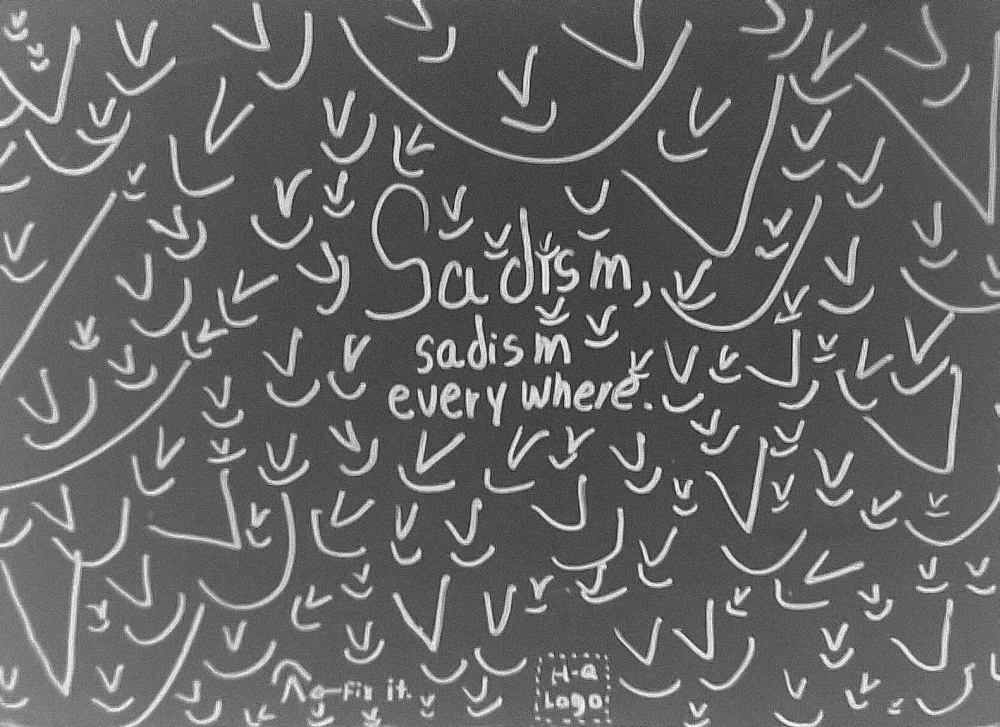 Sadism,
sadism
everywhere.
Fix it.
H-a
Logo